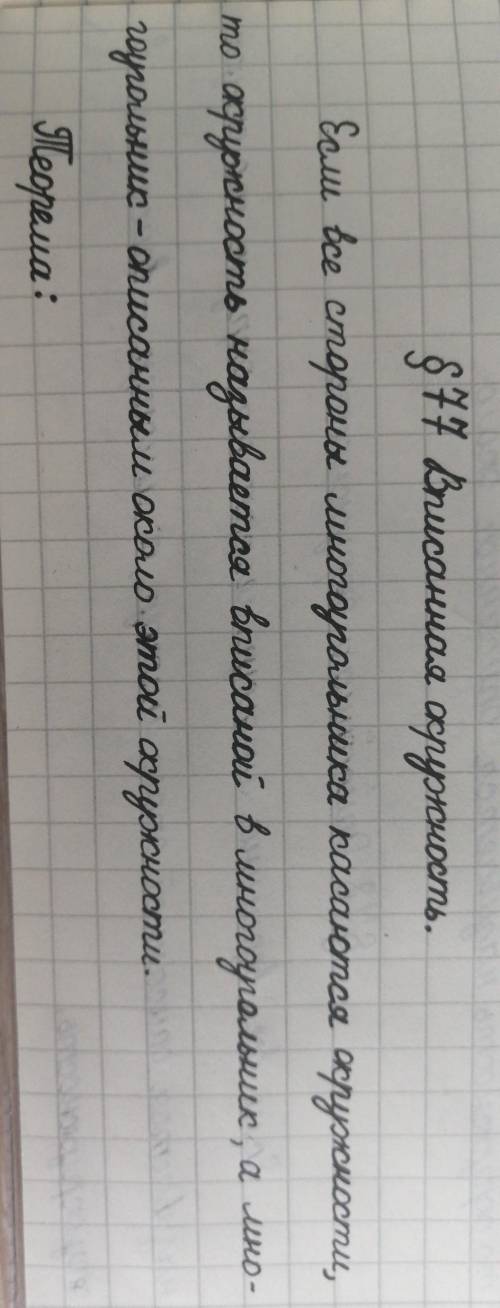 §77 Вписанная окружность.
Если все стороны многоугольника касаются окружности,
то окружность называется вписаной в многоугольник, а мно-
гоугольник - описанным около этой окружности.
Теорема: